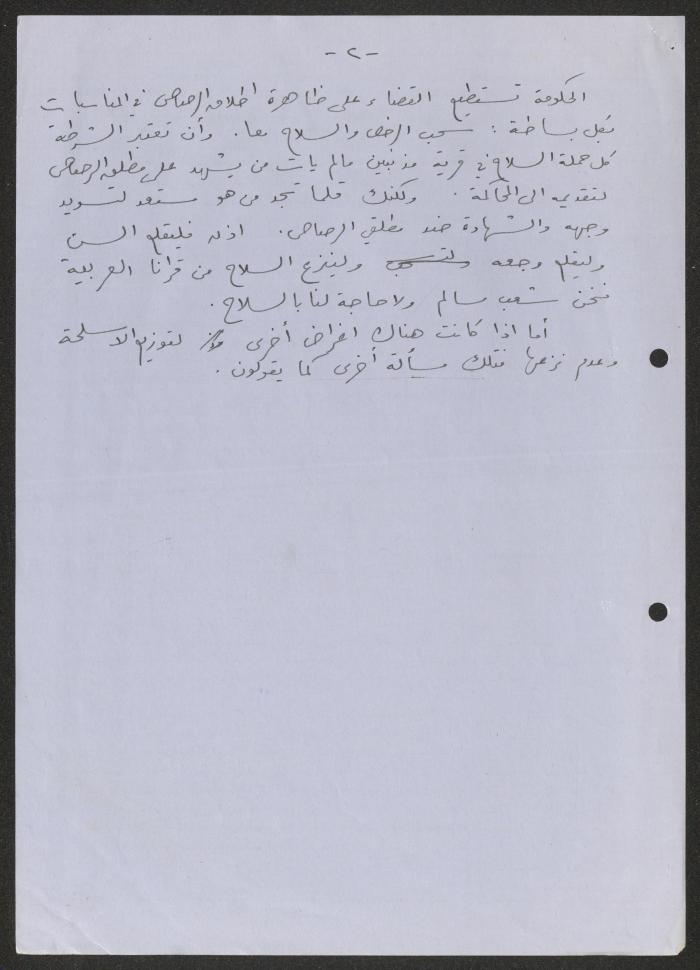 - ٢ -
الحكومة تستطيع القضاء على ظاهرة اطلاق الرصاص في المناسبات
بكل بساطة : سحب الرخص والسلاح معا . وأن تعتبر الشرطة
كل حملة السلاح في قرية مذنبين مالم يأت من يشهد على مطلق الرصاص
لتقديمه الى المحاكمة . ولكنك قلما تجد من هو مستعد لتسويد
وجهه والشهادة ضد مطلقي الرصاص . اذن فليقلع السن
وليقلع وجعه ولينزع السلاح من قرانا العربية
فنحن شعب مسالم ولا حاجة لنا بالسلاح .
أما اذا كانت هناك اغراض أخرى لتوزيع الاسلحة
وعدم نزعها فتلك مسألة أخرى كما يقولون .